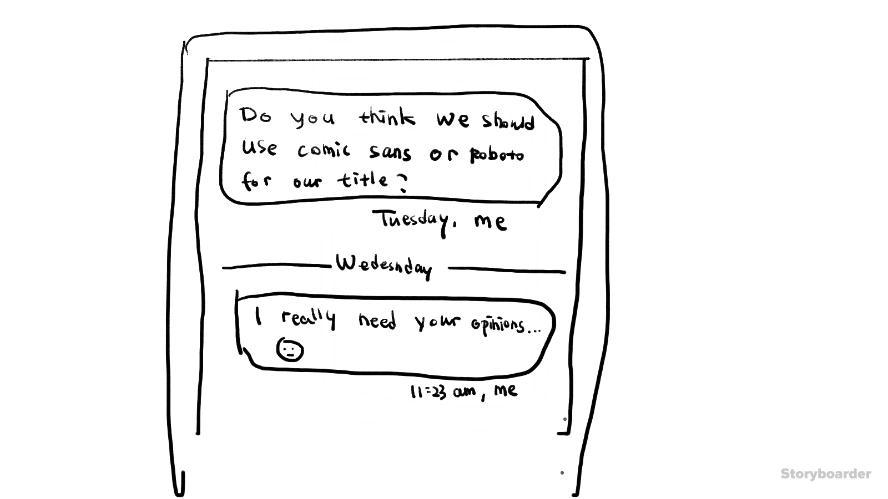 Do you think we should
use comic sans or Roboto
for our title?
Tuesday, me
Wedesnday
I really need your opinions...
11:23 am, me
Storyboarder